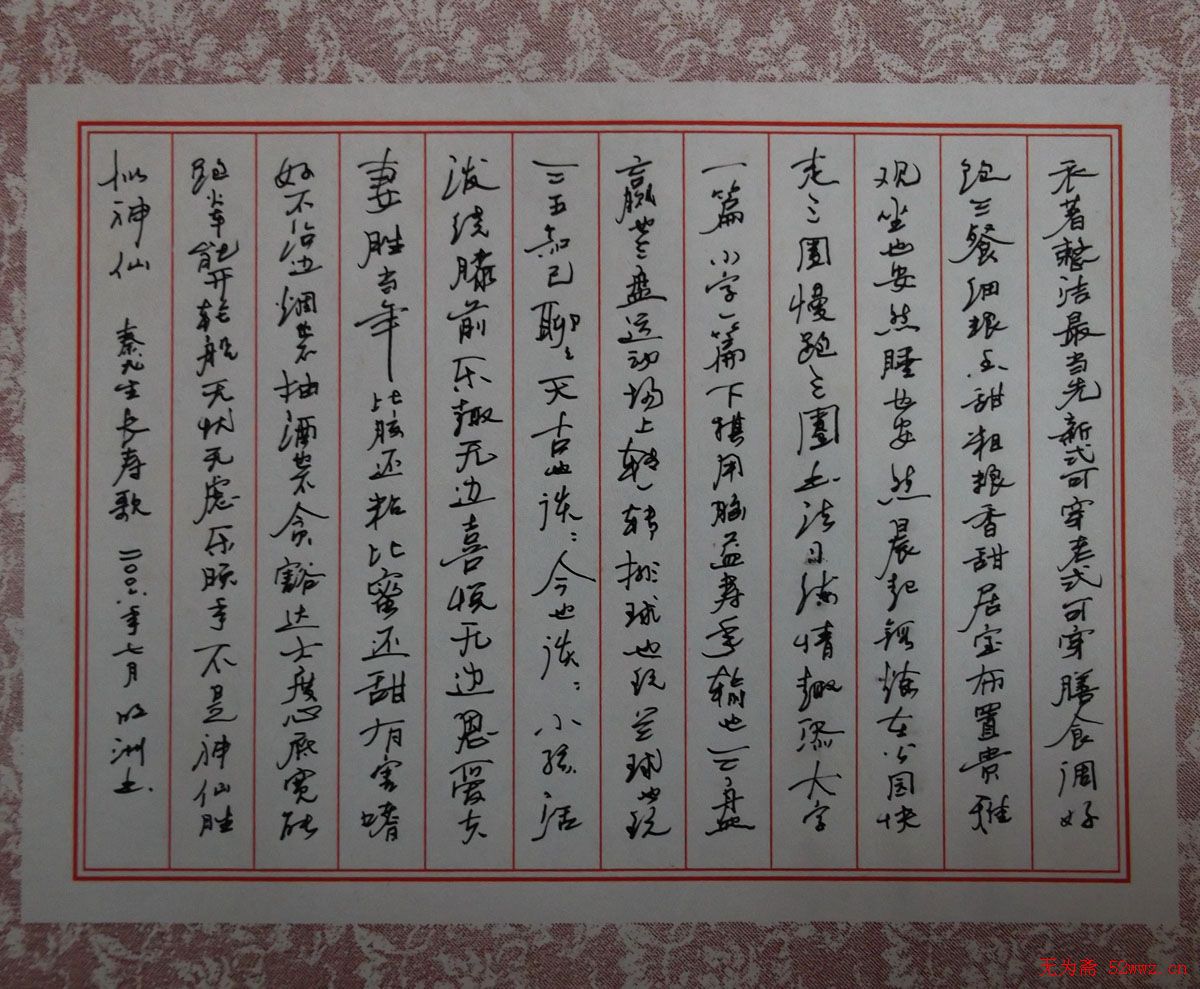 衣着整洁最当先新式可穿老式可穿膳食调好
饱三餐细粮香甜粗粮香甜居室布置贵雅
观坐也安然睡也安然晨起锻炼在公园快
走三圈慢跑三圈书法习练情趣添大字
一篇小字一篇下棋用脑益寿年输也三盘
赢也三盘运动场上转一转排球也玩篮球也玩
三五知己聊聊天古也谈谈今也谈谈小孩活
泼绕膝前乐趣无边喜悦无边恩爱夫
妻胜当年比胶还粘比蜜还甜有害嗜
好不沾边烟也不抽酒也不贪豁达大度心底宽能
跑火车能开轮船无忧无虑乐晚年不是神仙胜
似神仙 秦先生长寿歌 二〇〇八年七月 书
无为斋 52wwz.cn